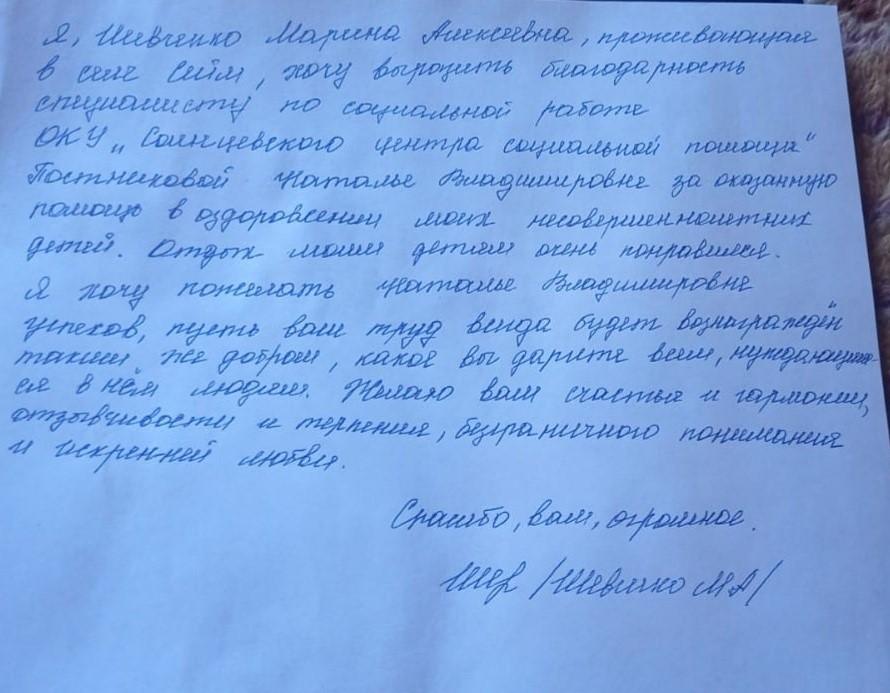 Я, Шевченко Марина Алексеевна, проживающая
в селе Сейм, хочу выразить благодарность
специалисту по социальной работе
ОКУ „Солнцевского центра социальной помощи"
Постниковой Наталье Владимировне за оказанную
помощь в оздоровлении моих несовершеннолетних
детей. Отдых моим детям очень понравился.
Я хочу пожелать Наталье Владимировне
успехов, пусть ваш труд всегда будет вознаграждён
таким же добром, какое вы дарите всем, нуждающим-
ся в нём людям. Желаю вам счастья и гармонии,
отзывчивости и терпения, безграничного понимания
и искренней любви.
Спасибо, вам, огромное.
/Шевченко МА/